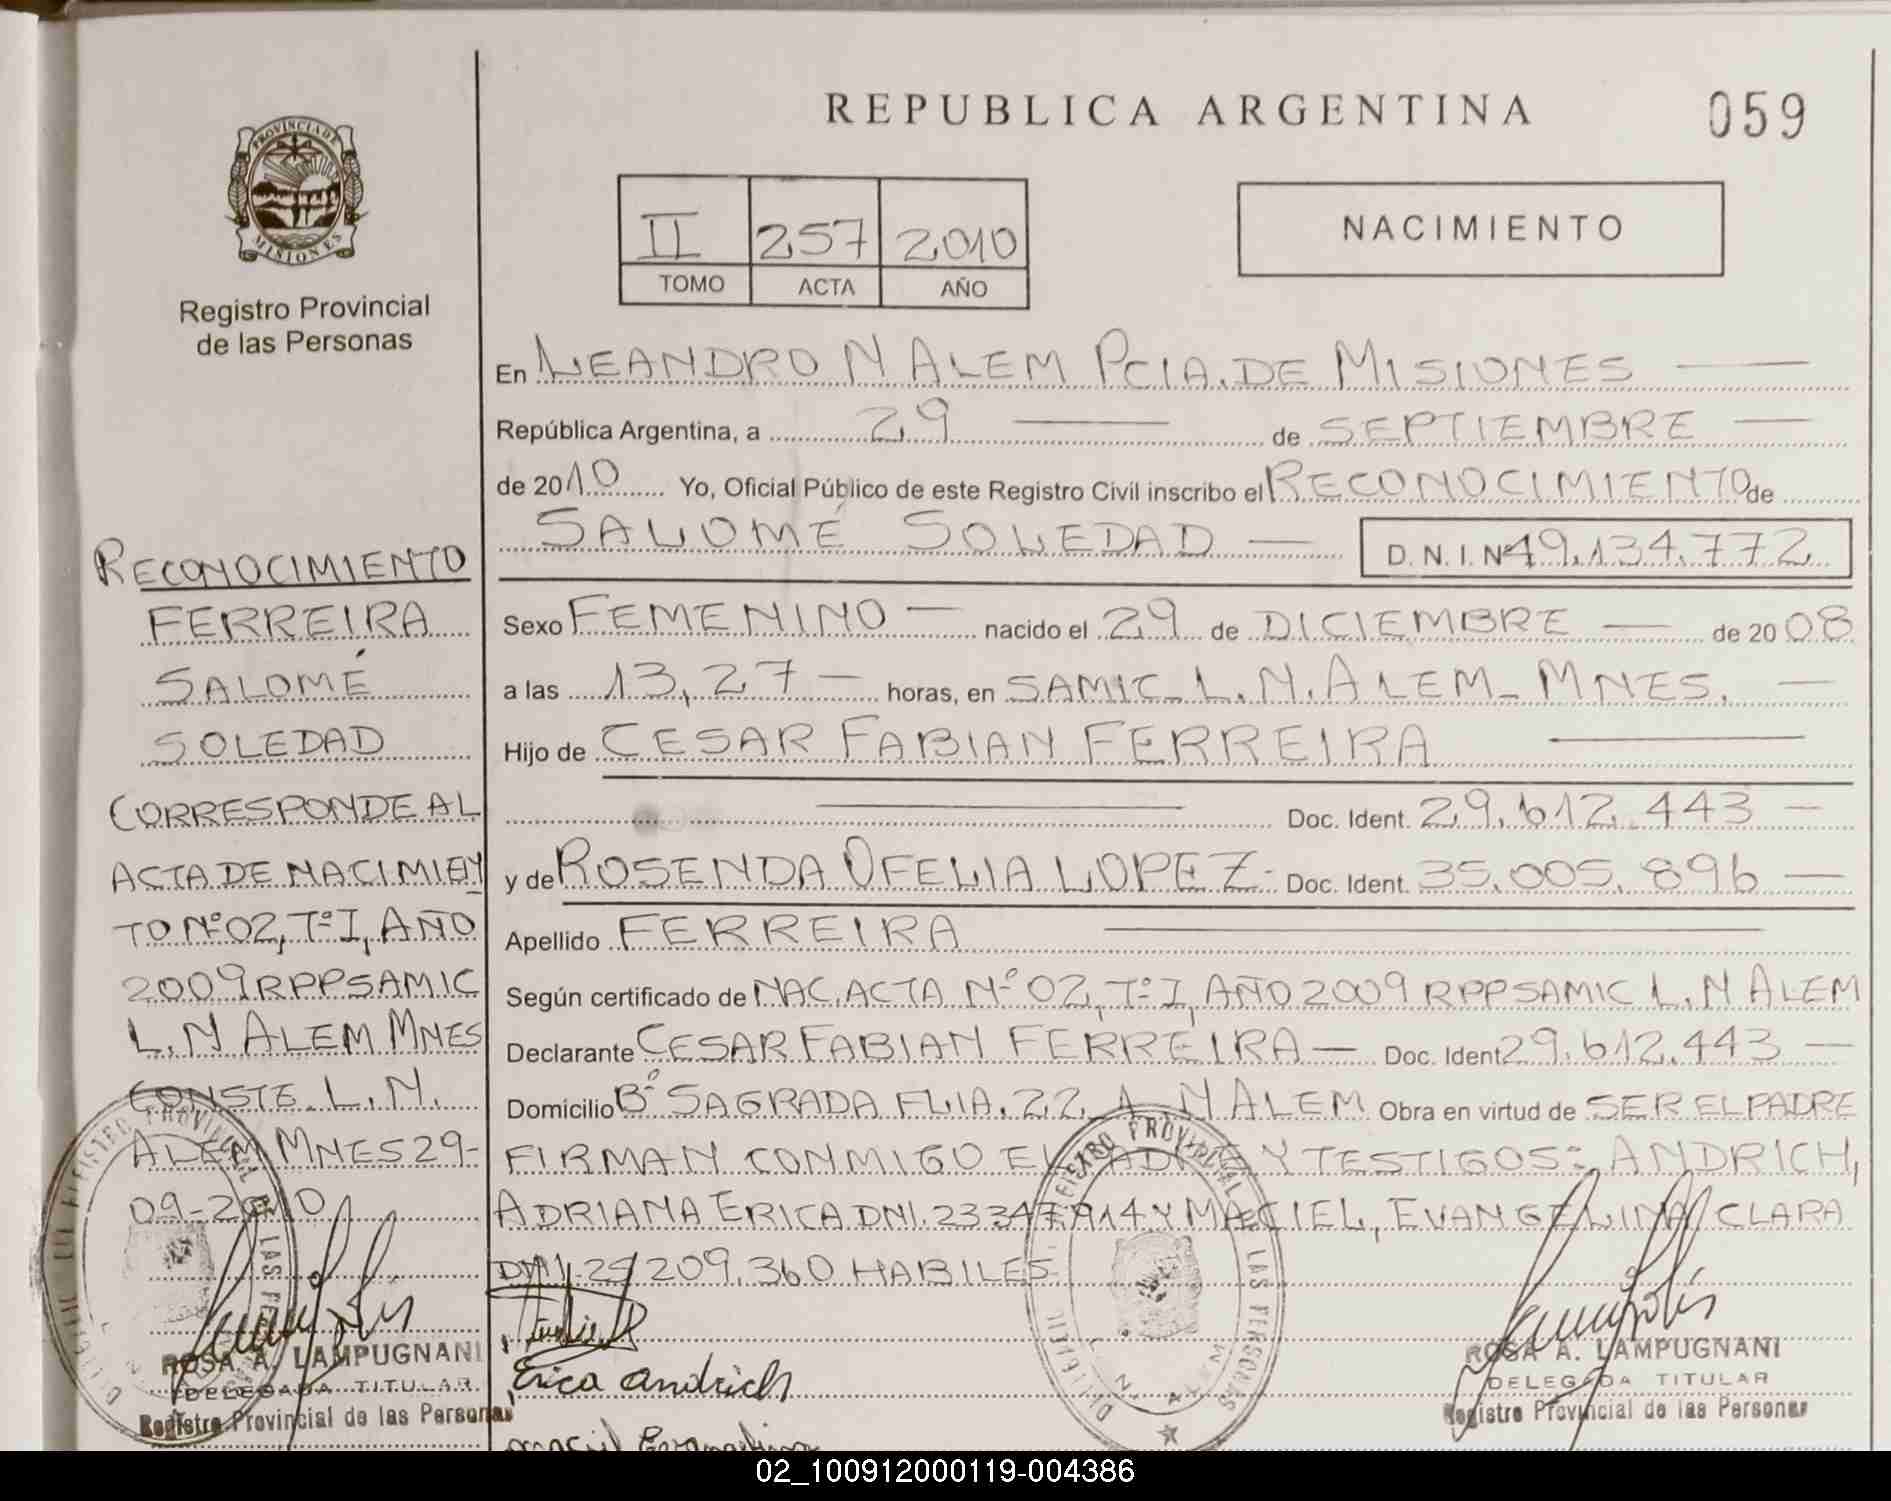 REPUBLICA ARGENTINA
059
PROVINCIA DE
MISIONES
Registro Provincial
de las Personas
II 257 2010
TOMO ACTA AÑO
NACIMIENTO
En LEANDRO N ALEM PCIA. DE MISIONES
República Argentina, a 29 de SEPTIEMBRE
de 2010 Yo, Oficial Público de este Registro Civil inscribo el RECONOCIMIENTO de
SALOMÉ SOLEDAD D. N. I. Nº 49.134.772
Sexo FEMENINO nacido el 29 de DICIEMBRE de 2008
a las 13,27 horas, en SAMIC L.N. ALEM - MNES.
Hijo de CESAR FABIAN FERREIRA
Doc. Ident. 29.612.443
y de ROSENDA OFELIA LOPEZ Doc. Ident. 35.005.896
Apellido FERREIRA
Según certificado de NAC. ACTA Nº 02, Tº I, AÑO 2009 RPPSAMIC L.N ALEM
Declarante CESAR FABIAN FERREIRA Doc. Ident 29.612.443
Domicilio Bº SAGRADA FLIA. 22 N ALEM Obra en virtud de SER EL PADRE
FIRMAN CONMIGO EL Y TESTIGOS: ANDRICH,
ADRIANA ERICA DNI. 23 914 Y MACIEL, EVANGELINA CLARA
DNI. 209.360 HABILES
Erica andrich
ROSA A. LAMPUGNANI
DELEGADA TITULAR
Registro Provincial de las Personas
RECONOCIMIENTO
FERREIRA
SALOMÉ
SOLEDAD
CORRESPONDE AL
ACTA DE NACIMIEN
TO Nº 02, Tº I, AÑO
2009 RPPSAMIC
L.N ALEM MNES
CONSTE. L.N.
ALEM MNES 29-
09-2010
ROSA A. LAMPUGNANI
DELEGADA TITULAR
Registro Provincial de las Personas
02_100912000119-004386